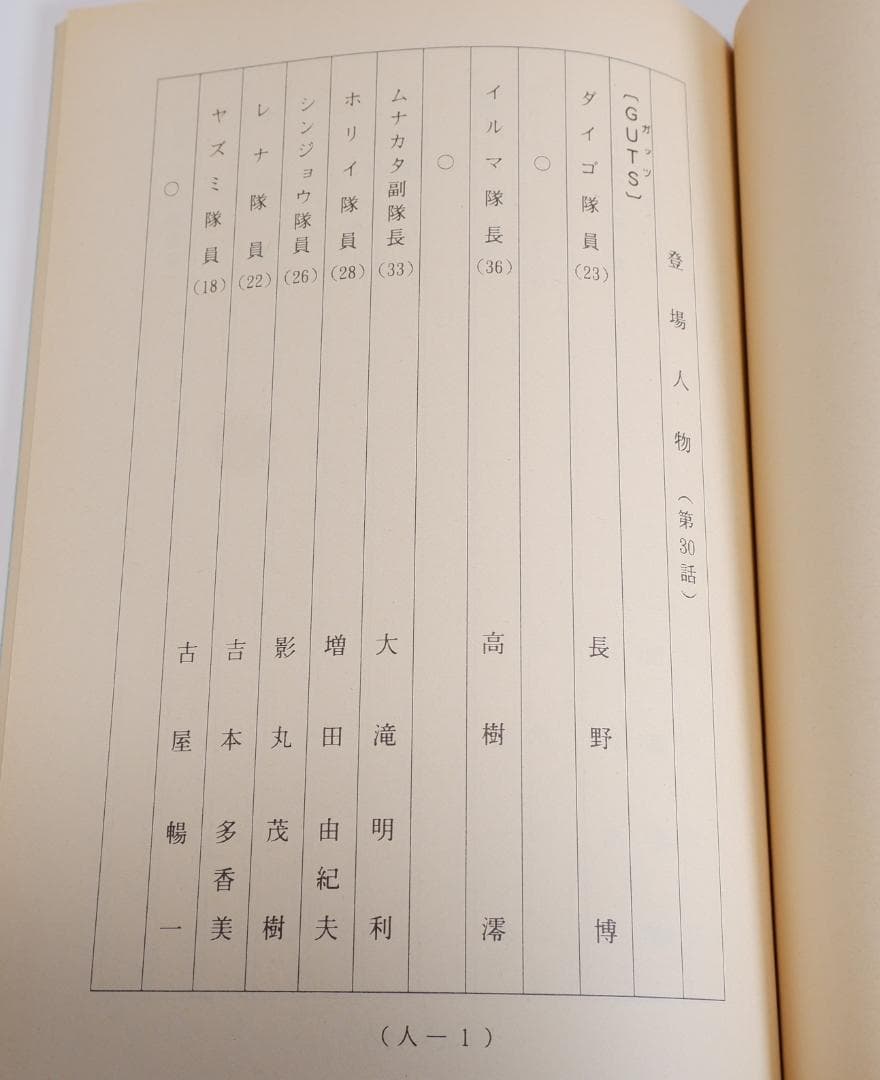 登場人物（第30話）
〔GUTS〕
ガッツ
ダイゴ隊員(23) 長野博
○
イルマ隊長(36) 高樹澪
○
ムナカタ副隊長(33) 大滝明利
ホリイ隊員(28) 増田由紀夫
シンジョウ隊員(26) 影丸茂樹
レナ隊員(22) 吉本多香美
ヤズミ隊員(18) 古屋暢一
○
（人－1）